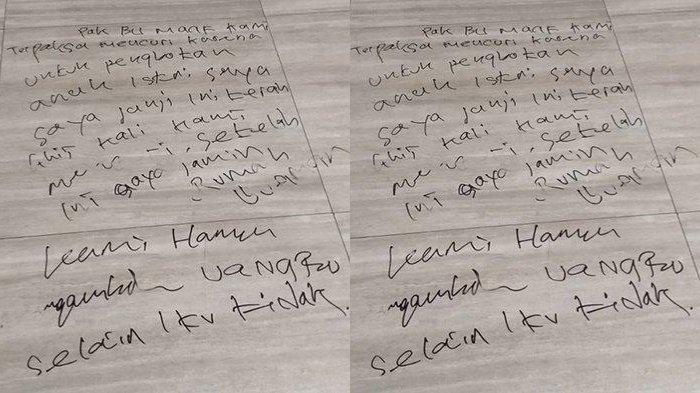 Pak Bu Maaf Kami
Terpaksa mencuri karena
untuk pengbotan
anak Istri saya
saya janji Ini terah
khir kali kami
setelah
Ini saya jamin
Rumah
Kami Hanya
ngambil uang
selain Itu tidak.
Pak Bu Maaf Kami
Terpaksa mencuri karena
untuk pengbotan
anak Istri saya
saya janji Ini terah
khir kali kami
setelah
Ini saya jamin
Rumah
Kami Hanya
ngambil uang
selain Itu tidak.